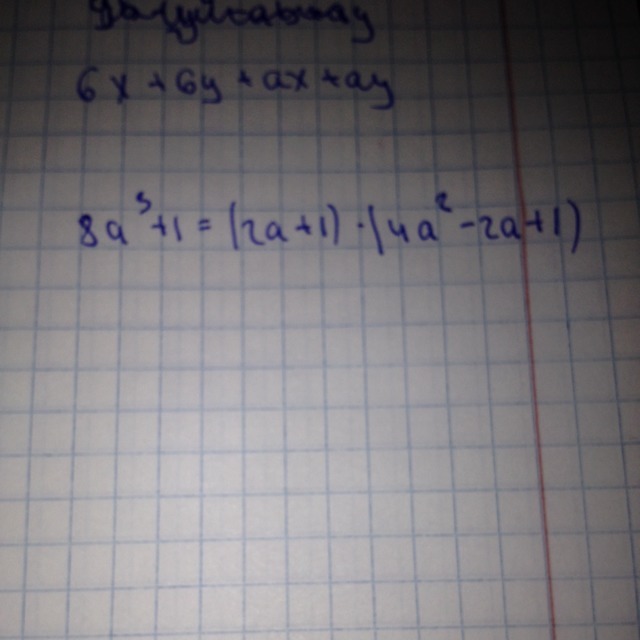 6x + 6y + ax + ay
8a³ + 1 = (2a + 1) · (4a² - 2a + 1)